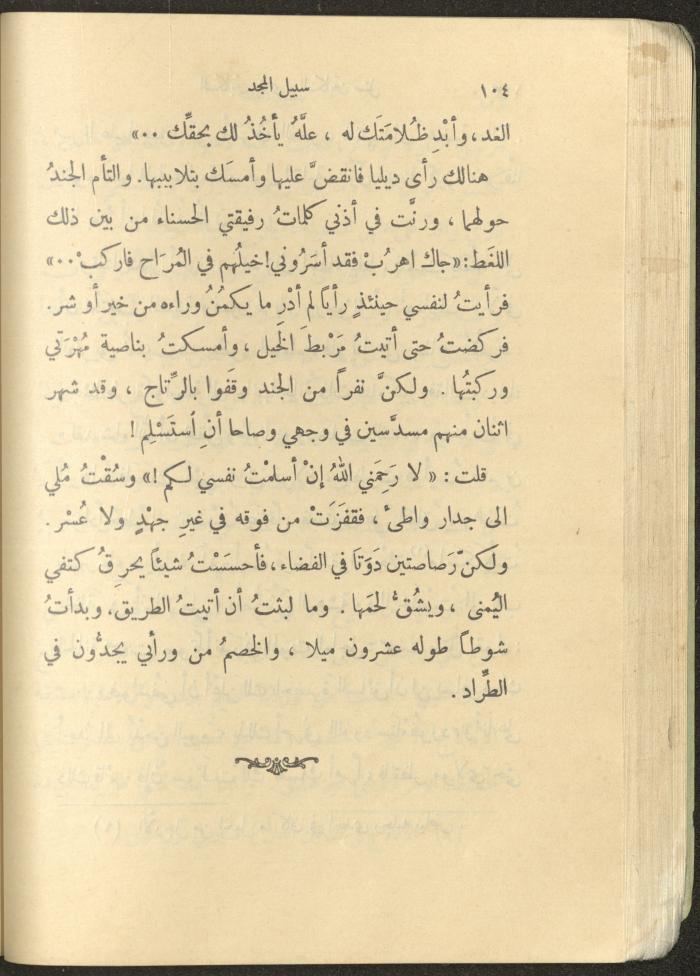 ١٠٤ سبيل المجد
الغد، وأَبْدِ ظُلامَتَك له ، علَّهُ يأخُذُ لك بحقِّك ٠٠»
هنالك رأى ديليا فانقضَّ عليها وأمسَك بتلابيبها. والتأم الجندُ
حولهما ، ورنَّت في أذني كلماتُ رفيقتي الحسناء من بين ذلك
اللغَط: «جاك اهربْ فقد أسَرُوني! خيلُهم في المُرَاح فاركبْ ٠٠»
فرأيتُ لنفسي حينئذٍ رأياً لم أدْرِ ما يكمُنُ وراءه من خير أو شر.
فركضتُ حتى أتيتُ مَرْبطَ الخيل ، وأمسكتُ بناصية مُهْرَتي
وركبتُها . ولكنَّ نفراً من الجند وقَفوا بالرِّتاج ، وقد شهر
اثنان منهم مسدَّسين في وجهي وصاحا أنِ اُستَسْلِم !
قلت : « لا رَحِمَني اللهُ إنْ أسلمْتُ نفسي لكم !» وسُقْتُ مُلي
الى جدار واطىء ، فقفَزَتْ من فوقه في غيرِ جهْدٍ ولا عُسْر .
ولكنّ رَصاصتين دَوَتَا في الفضاء ، فأحسَسْتُ شيئاً يحرِقُ كتفي
اليُمنى ، ويشُقُّ لحمَها . وما لبثتُ أن أتيتُ الطريق. وبدأتُ
شوطاً طوله عشرون ميلا ، والخصمُ من ورأبي يجدُّون في
الطِّراد .